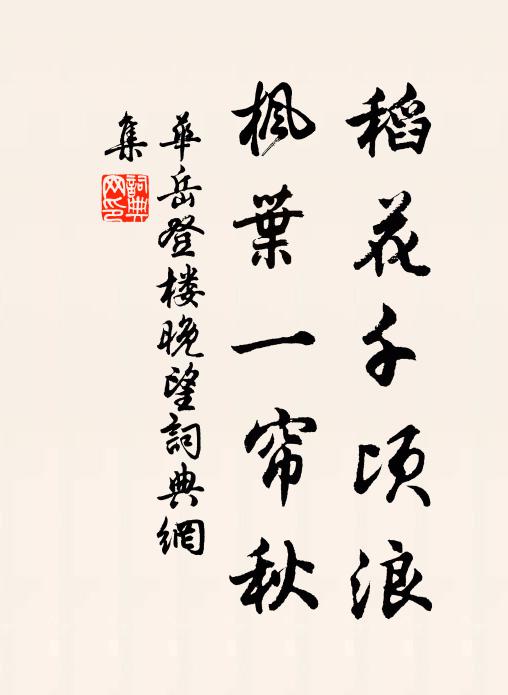 稻花千顷浪
枫葉一帘秋
華岳登楼晚望詞典網
集
詞典
网印